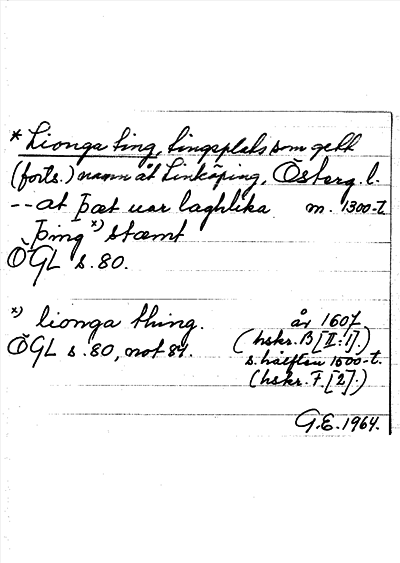 * Lionga ting, tingsplats som gett
(forts.) namn åt Linköping, Österg. l.
-- at þæt uar laghlika m. 1300-t.
þing *) stæmt
ÖGL s. 80.
*) lionga thing. år 1607
(hskr. B [II:1].)
ÖGL s. 80, not 84. s. hälften 1500-t.
(hskr. F. [2].)
G.E. 1964.